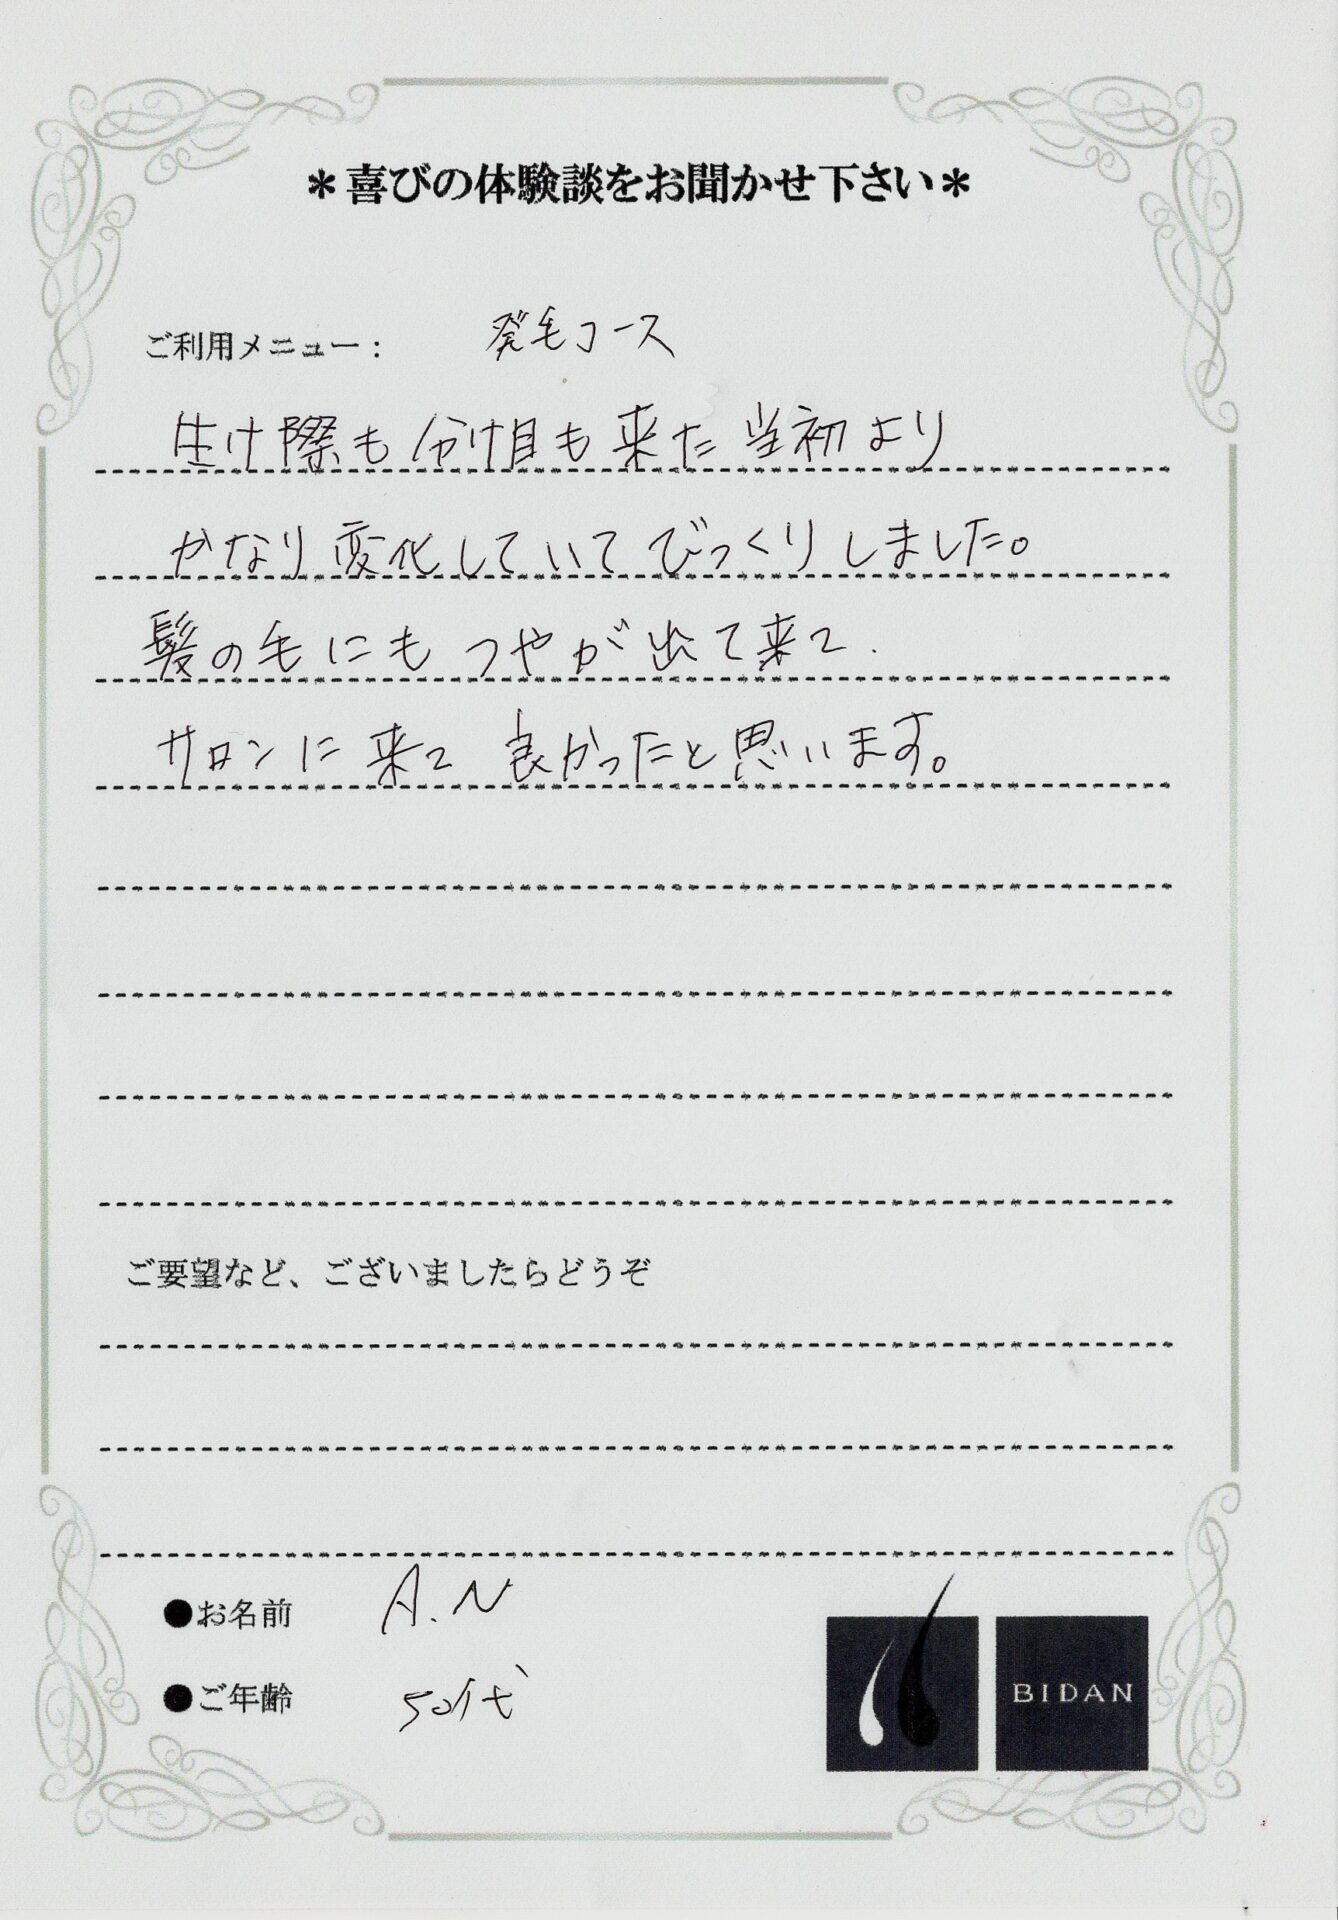 ＊喜びの体験談をお聞かせ下さい＊
ご利用メニュー： 発毛コース
生け際も分け目も来た当初より
かなり変化していてびっくりしました。
髪の毛にもつやが出て来て、
サロンに来て良かったと思います。
ご要望など、ございましたらどうぞ
●お名前 A.N
●ご年齢 50代
BIDAN